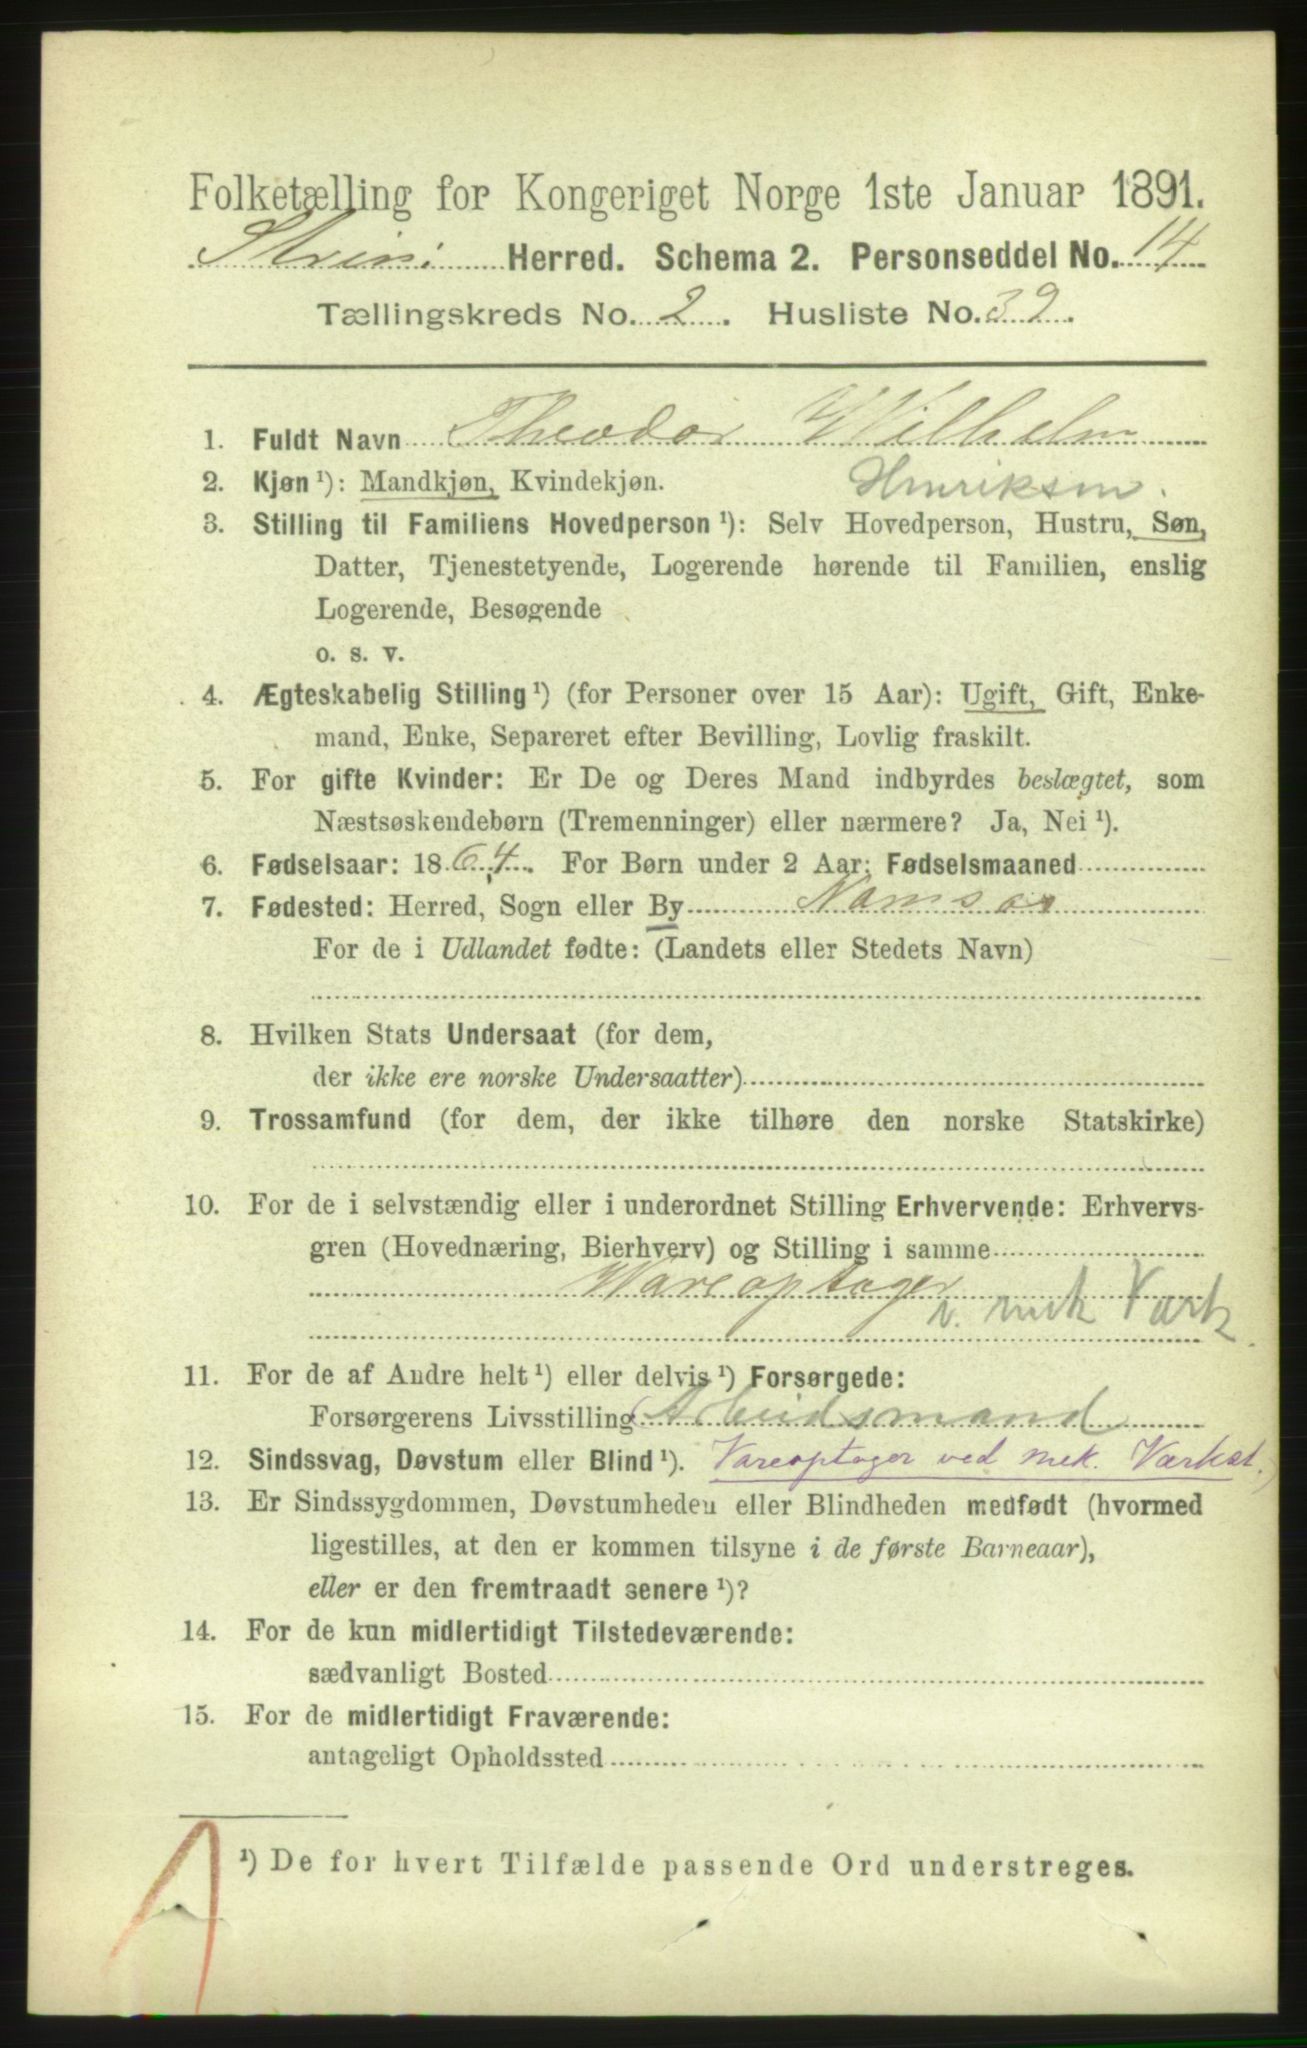 Folketælling for Kongeriget Norge 1ste Januar 1891.
Strini Herred. Schema 2. Personseddel No. 14
Tællingskreds No. 2. Husliste No. 39.
1. Fuldt Navn Theodor Wilhelm
Henriksen.
2. Kjøn ¹): Mandkjøn, Kvindekjøn.
3. Stilling til Familiens Hovedperson ¹): Selv Hovedperson, Hustru, Søn,
Datter, Tjenestetyende, Logerende hørende til Familien, enslig
Logerende, Besøgende
o. s. v.
4. Ægteskabelig Stilling ¹) (for Personer over 15 Aar): Ugift, Gift, Enke-
mand, Enke, Separeret efter Bevilling, Lovlig fraskilt.
5. For gifte Kvinder: Er De og Deres Mand indbyrdes beslægtet, som
Næstsøskendebørn (Tremenninger) eller nærmere? Ja, Nei ¹).
6. Fødselsaar: 1864. For Børn under 2 Aar: Fødselsmaaned
7. Fødested: Herred, Sogn eller By Namsos
For de i Udlandet fødte: (Landets eller Stedets Navn)
8. Hvilken Stats Undersaat (for dem,
der ikke ere norske Undersaatter)
9. Trossamfund (for dem, der ikke tilhøre den norske Statskirke)
10. For de i selvstændig eller i underordnet Stilling Erhvervende: Erhvervs-
gren (Hovednæring, Bierhverv) og Stilling i samme
Wareoptager
v. mek Værk.
11. For de af Andre helt ¹) eller delvis ¹) Forsørgede:
Forsørgerens Livsstilling Arbeidsmand
12. Sindssvag, Døvstum eller Blind ¹). Vareoptager ved mek. Værkst.
13. Er Sindssygdommen, Døvstumheden eller Blindheden medfødt (hvormed
ligestilles, at den er kommen tilsyne i de første Barneaar),
eller er den fremtraadt senere ¹)?
14. For de kun midlertidigt Tilstedeværende:
sædvanligt Bosted
15. For de midlertidigt Fraværende:
antageligt Opholdssted
¹) De for hvert Tilfælde passende Ord understreges.